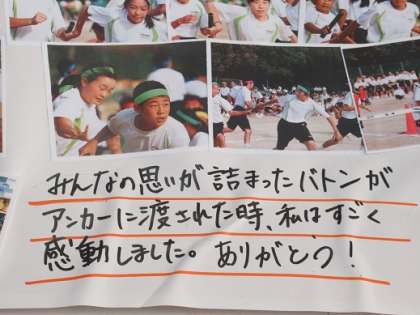 みんなの思いが詰まったバトンが
アンカーに渡された時、私はすごく
感動しました。ありがとう!